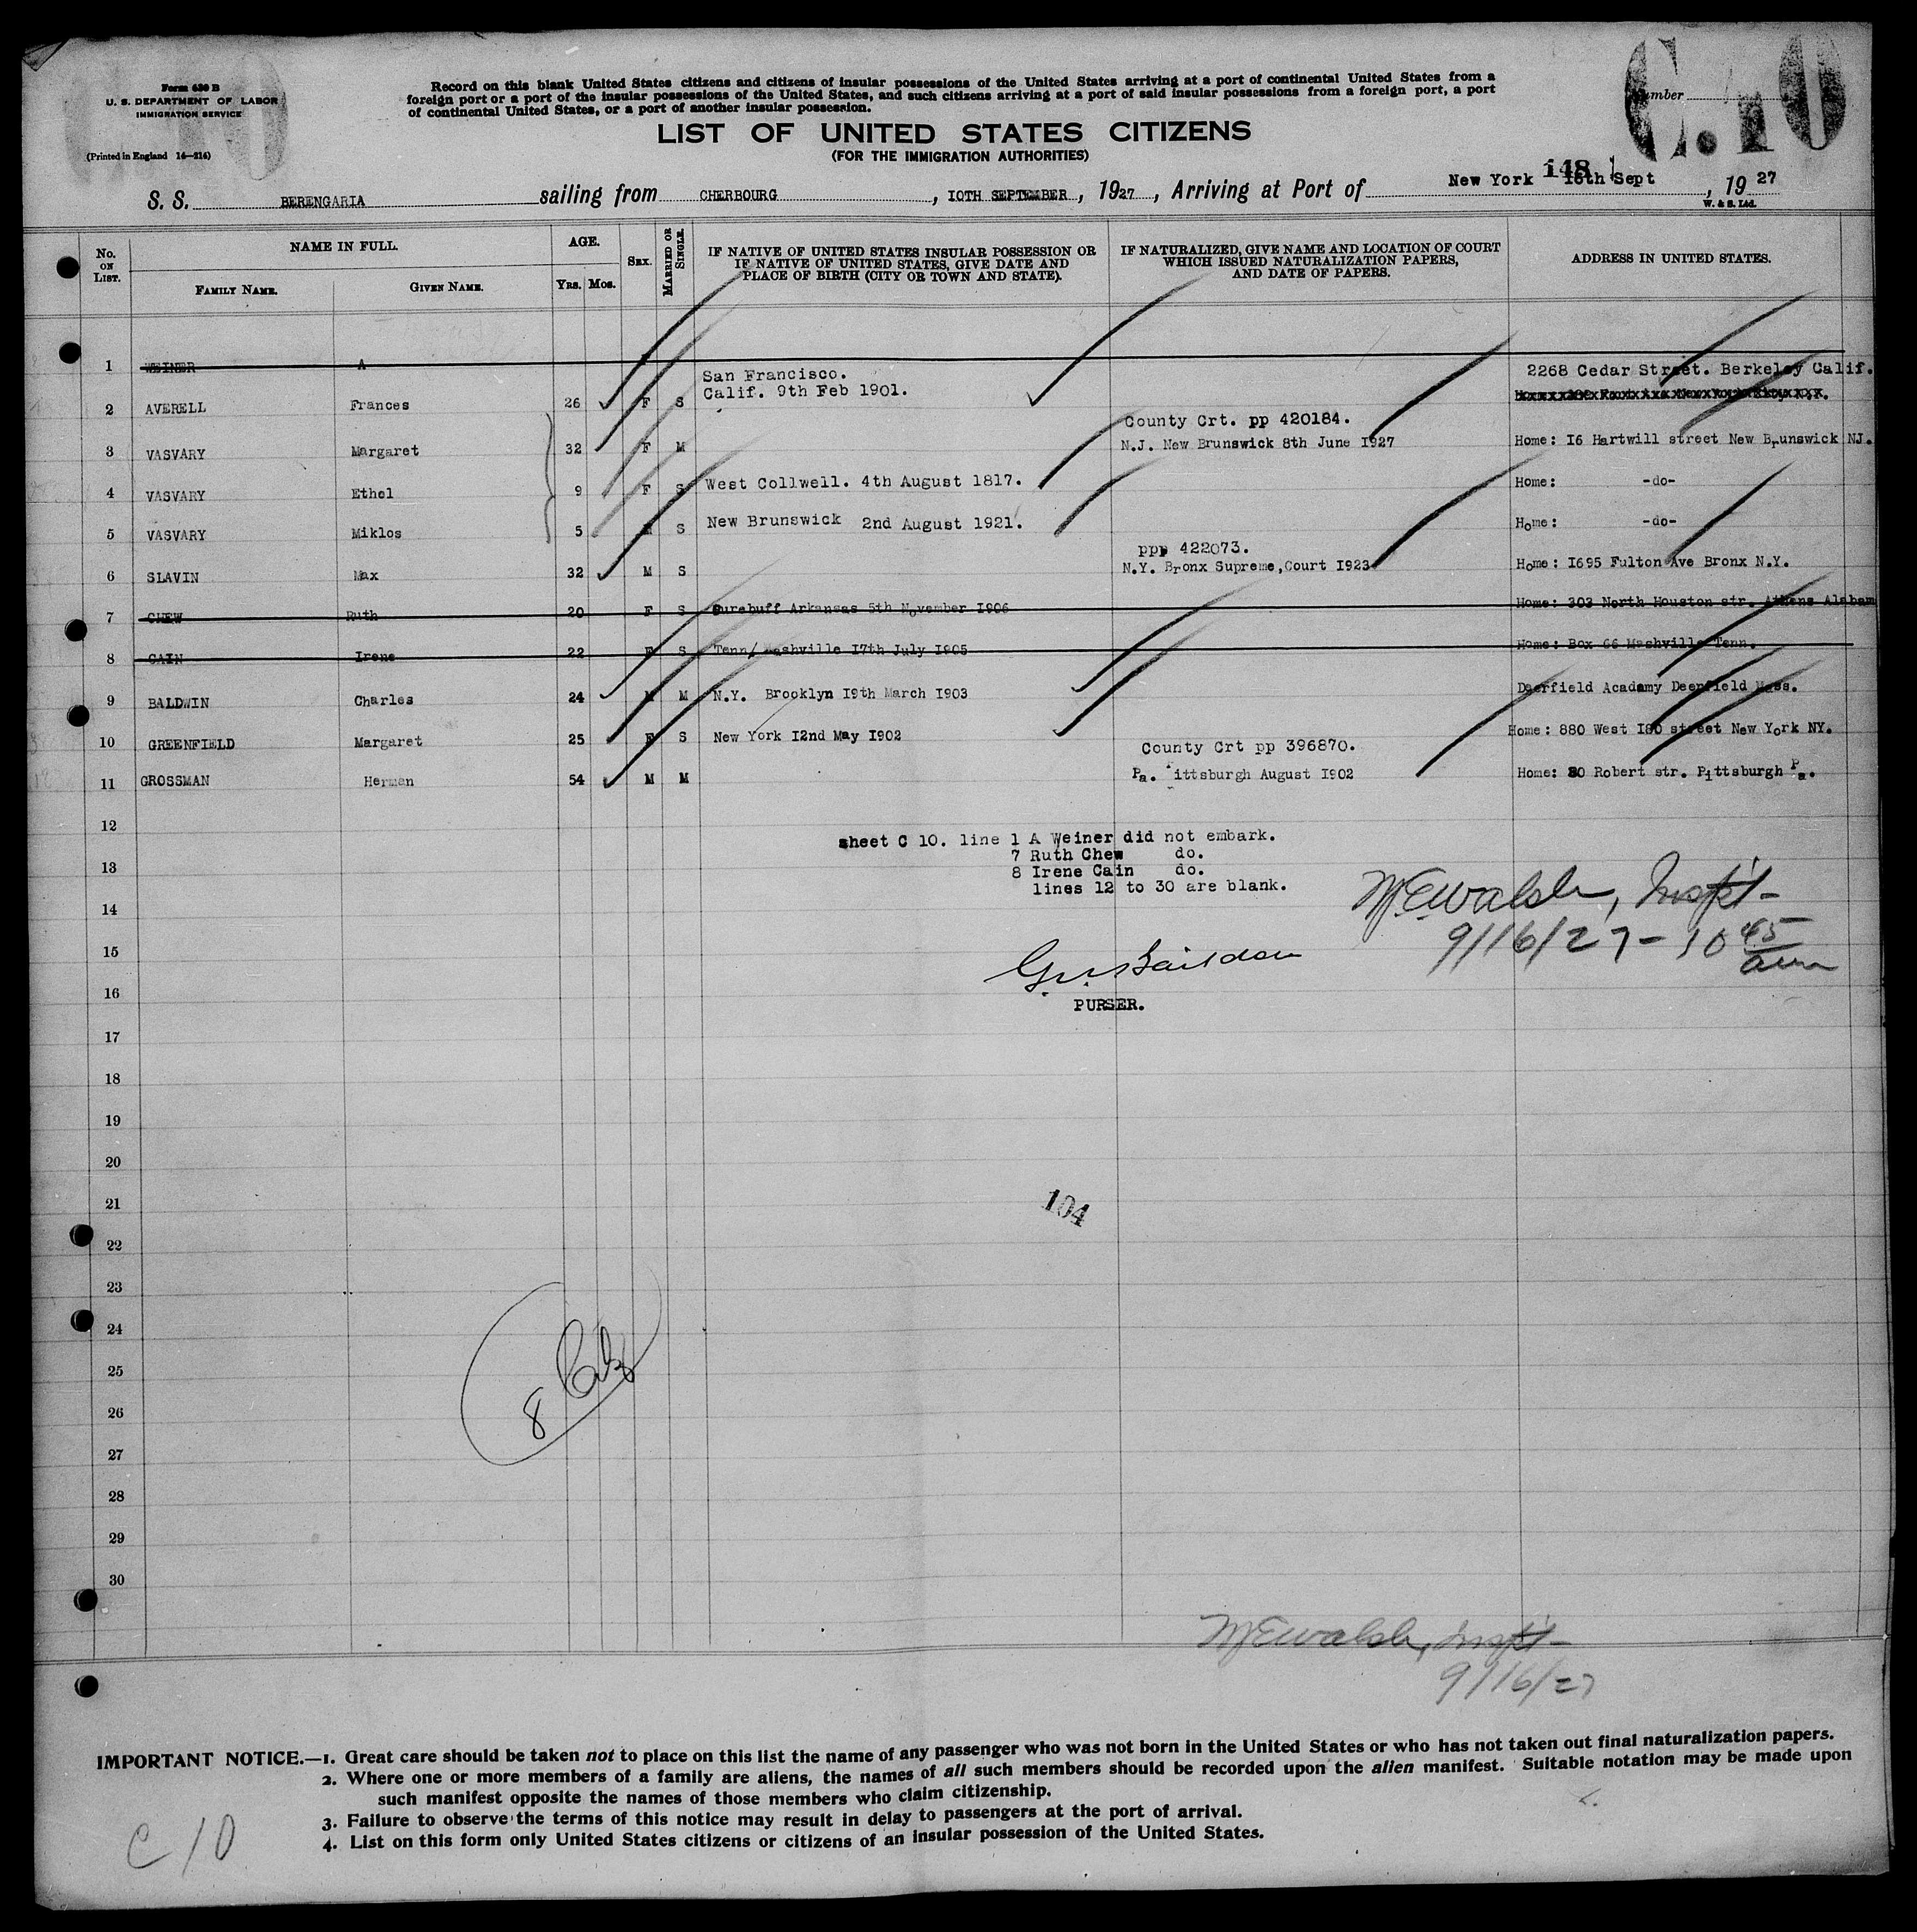 Form 630 B
U. S. DEPARTMENT OF LABOR
IMMIGRATION SERVICE
(Printed in England 14—214)
Record on this blank United States citizens and citizens of insular possessions of the United States arriving at a port of continental United States from a
foreign port or a port of the insular possessions of the United States, and such citizens arriving at a port of said insular possessions from a foreign port, a port
of continental United States, or a port of another insular possession.
Number
C.10
LIST OF UNITED STATES CITIZENS
(FOR THE IMMIGRATION AUTHORITIES)
148
S. S. BERENGARIA sailing from CHERBOURG, IOTH SEPTEMBER, 1927, Arriving at Port of New York 16th Sept, 19 27
W. & S. Ltd.
No. ON LIST. NAME IN FULL. AGE. SEX. MARRIED OR SINGLE. IF NATIVE OF UNITED STATES INSULAR POSSESSION OR IF NATIVE OF UNITED STATES, GIVE DATE AND PLACE OF BIRTH (CITY OR TOWN AND STATE). IF NATURALIZED, GIVE NAME AND LOCATION OF COURT WHICH ISSUED NATURALIZATION PAPERS, AND DATE OF PAPERS. ADDRESS IN UNITED STATES.
FAMILY NAME. GIVEN NAME. YRS. MOS.
1 WEINER A
San Francisco. 2268 Cedar Street. Berkeley Calif.
2 AVERELL Frances 26 F S Calif. 9th Feb 1901.
County Crt. pp 420184.
3 VASVARY Margaret 32 F M N.J. New Brunswick 8th June I927 Home: I6 Hartwill street New Brunswick NJ.
4 VASVARY Ethel 9 F S West Collwell. 4th August 1817. Home: -do-
5 VASVARY Miklos 5 M S New Brunswick 2nd August 1921. Home: -do-
ppp 422073.
6 SLAVIN Max 32 M S N.Y. Bronx Supreme,Court I923 Home: I695 Fulton Ave Bronx N.Y.
7 CHEW Ruth 20 F S Arkansas 5th November I906 Home: 303 North Houston str. Athens Alabam
8 CAIN Irene 22 F S Tenn/ Nashville I7th July I905 Home: Box 66 Nashville Tenn.
9 BALDWIN Charles 24 M M N.Y. Brooklyn I9th March I903 Deerfield Acadamy Deerfield Mass.
10 GREENFIELD Margaret 25 F S New York I2nd May I902 Home: 880 West I80 street New York NY.
County Crt pp 396870.
11 GROSSMAN Herman 54 M M Pa. Pittsburgh August I902 Home: 80 Robert str. Pittsburgh Pa.
12
sheet C 10. line 1 A Weiner did not embark.
7 Ruth Chew do.
13
8 Irene Cain do.
lines 12 to 30 are blank.
M.E. Walsh, Inspt-
14
9/16/27 - 10 45 am
15
16
PURSER.
17
18
19
20
21
104
22
23
24
25
8
26
27
28
29
30
M E Walsh, Inspt-
9/16/27
IMPORTANT NOTICE.—1. Great care should be taken not to place on this list the name of any passenger who was not born in the United States or who has not taken out final naturalization papers.
2. Where one or more members of a family are aliens, the names of all such members should be recorded upon the alien manifest. Suitable notation may be made upon
such manifest opposite the names of those members who claim citizenship.
3. Failure to observe the terms of this notice may result in delay to passengers at the port of arrival.
4. List on this form only United States citizens or citizens of an insular possession of the United States.
C 10